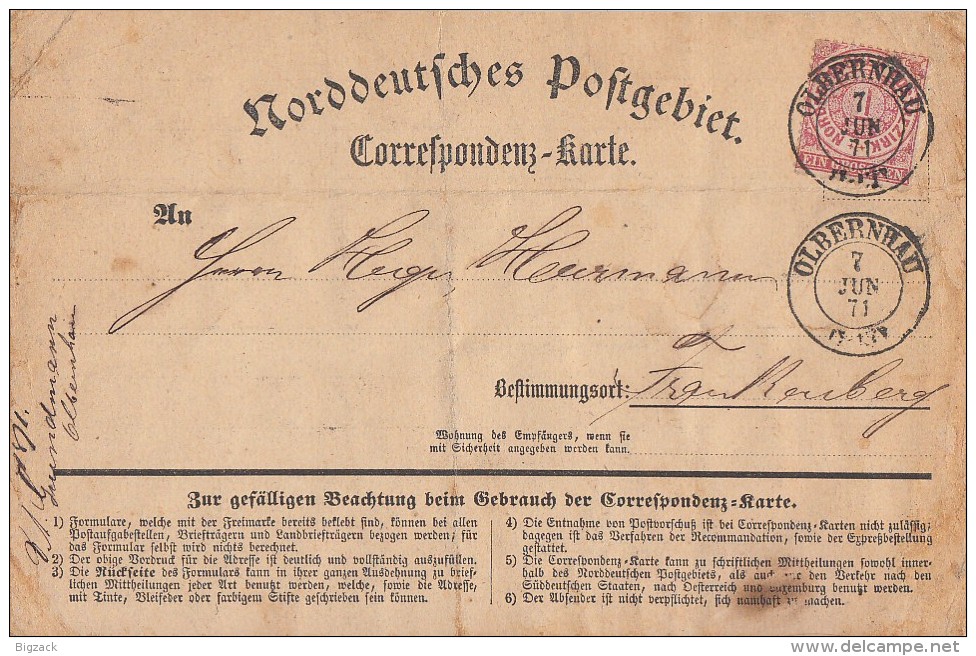 Norddeutsches Postgebiet.
Correspondenz-Karte.
OLBERNHAU
7
JUN
71
1
An
Herrn Hugo Hermann
OLBERNHAU
7
JUN
71
Bestimmungsort: Frankenberg
Wohnung des Empfängers, wenn sie
mit Sicherheit angegeben werden kann.
Olbernhau
Zur gefälligen Beachtung beim Gebrauch der Correspondenz-Karte.
1) Formulare, welche mit der Freimarke bereits beklebt sind, können bei allen
Postaufgabestellen, Briefträgern und Landbriefträgern bezogen werden; für
das Formular selbst wird nichts berechnet.
2) Der obige Vordruck für die Adresse ist deutlich und vollständig auszufüllen.
3) Die Rückseite des Formulars kann in ihrer ganzen Ausdehnung zu brief-
lichen Mittheilungen jeder Art benutzt werden, welche, sowie die Adresse,
mit Tinte, Bleifeder oder farbigem Stifte geschrieben sein können.
4) Die Entnahme von Postvorschuß ist bei Correspondenz-Karten nicht zulässig;
dagegen ist das Verfahren der Recommandation, sowie der Expreßbestellung
gestattet.
5) Die Correspondenz-Karte kann zu schriftlichen Mittheilungen sowohl inner-
halb des Norddeutschen Postgebiets, als auch für den Verkehr nach den
Süddeutschen Staaten, nach Oesterreich und Luxemburg benutzt werden.
6) Der Absender ist nicht verpflichtet, sich namhaft zu machen.
Bigzack
delcampe.net